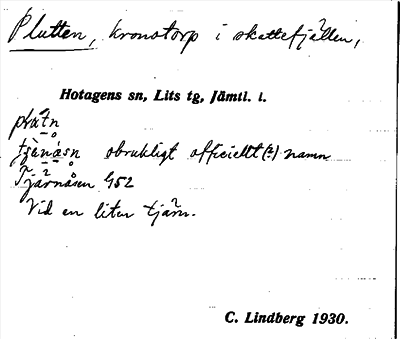 Plutten, kronotorp i skattefjällen,
Hotagens sn, Lits tg, Jämtl. l.
obrukligt officiellt (?) namn
Tjärnåsen 452
Vid en liten tjärn.
C. Lindberg 1930.